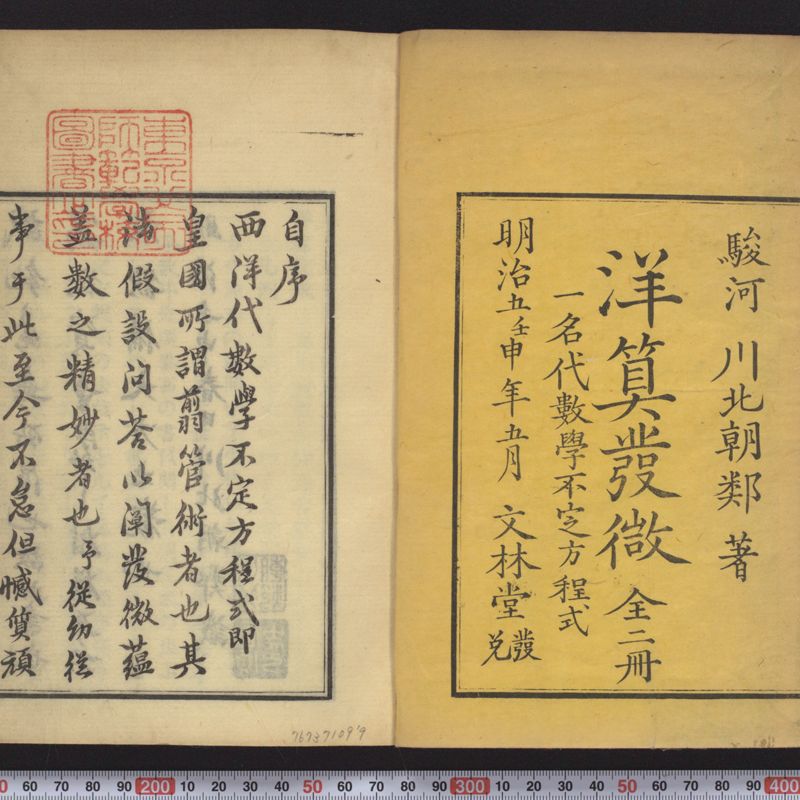 駿河 川北朝鄰 著
洋算發微 全二冊
一名代數學不定方程式
明治五壬申年五月 文林堂 發兌
自序
西洋代數學不定方程式即
皇國所謂翦管術者也其
法假設問答以闡發微蘊
蓋數之精妙者也予從幼從
事于此至今不怠但憾質頑
767±7109'9
0 60 70 80 90 200 10 20 30 40 50 60 70 80 90 300 10 20 30 40 50 60 70 80 90 400